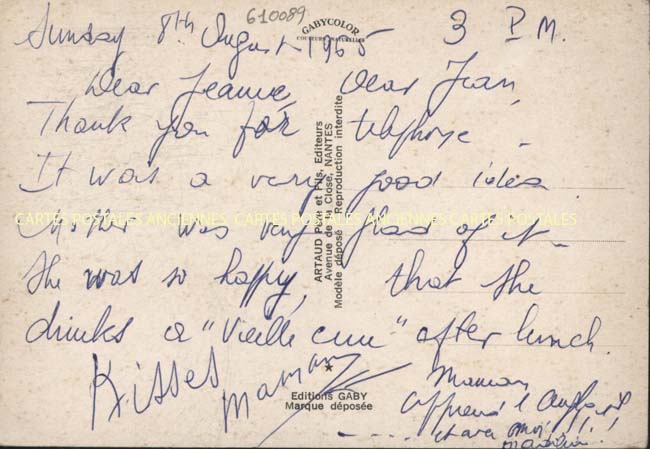 610089
GABYCOLOR
COULEURS NATURELLES
Sunday 8th August 1965 3 P.M.
Dear Jeanne, Dear Jean,
Thank you for telephone.
It was a very good idea.
CARTES POSTALES ANCIENNES CARTES POSTALES ANCIENNES CARTES POSTALES
Mother was very glad of it.
She was so happy, that she
drinks a "Vieille cure" after lunch.
Kisses Maman
Maman
apprend l'anglais
avec moi!!!
ARTAUD Père et Fils, Editeurs
Avenue de la Close, NANTES
Modèle déposé - Reproduction interdite
Editions GABY
Marque déposée